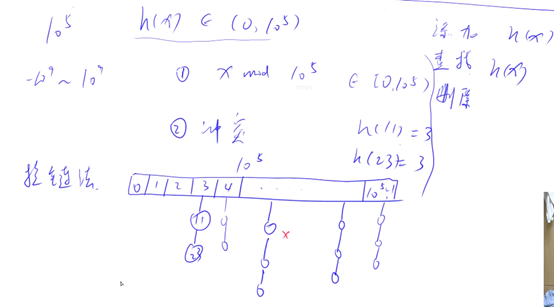 10⁵ h(x) ∈ (0, 10⁵)
-10⁹ ~ 10⁹ ① x mod 10⁵ ∈ [0, 10⁵)
② 冲突
h(11) = 3
h(23) = 3
添加 h(x)
查找 h(x)
删除
拉链法
10⁵
0 1 2 3 4 ... 10⁵-1
11
23
x